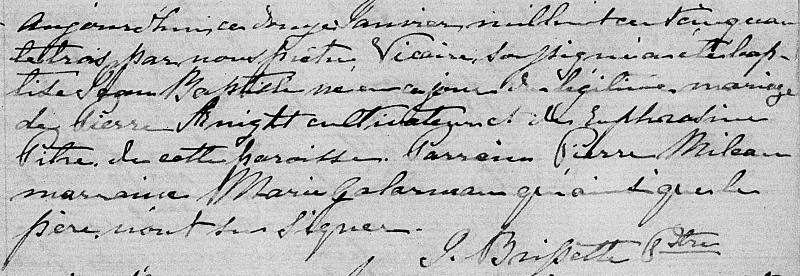 Aujourd'hui ce douze Janvier mil huit cent cinquan
te trois par nous prêtre Vicaire soussigné a été bap
tisé Jean Baptiste né en ce jour du légitime mariage
de Pierre Knight cultivateur et de Euphrosine
Titre de cette paroisse. Parrain Pierre Milcau
marraine Marie Galarneau qui ainsi que le
père, n'ont su signer.
J. Brissette Ptre